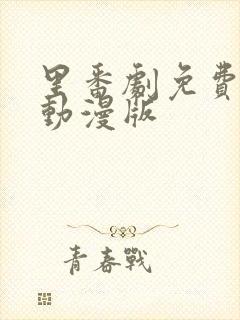 里番劇免費
動漫版
青春戰